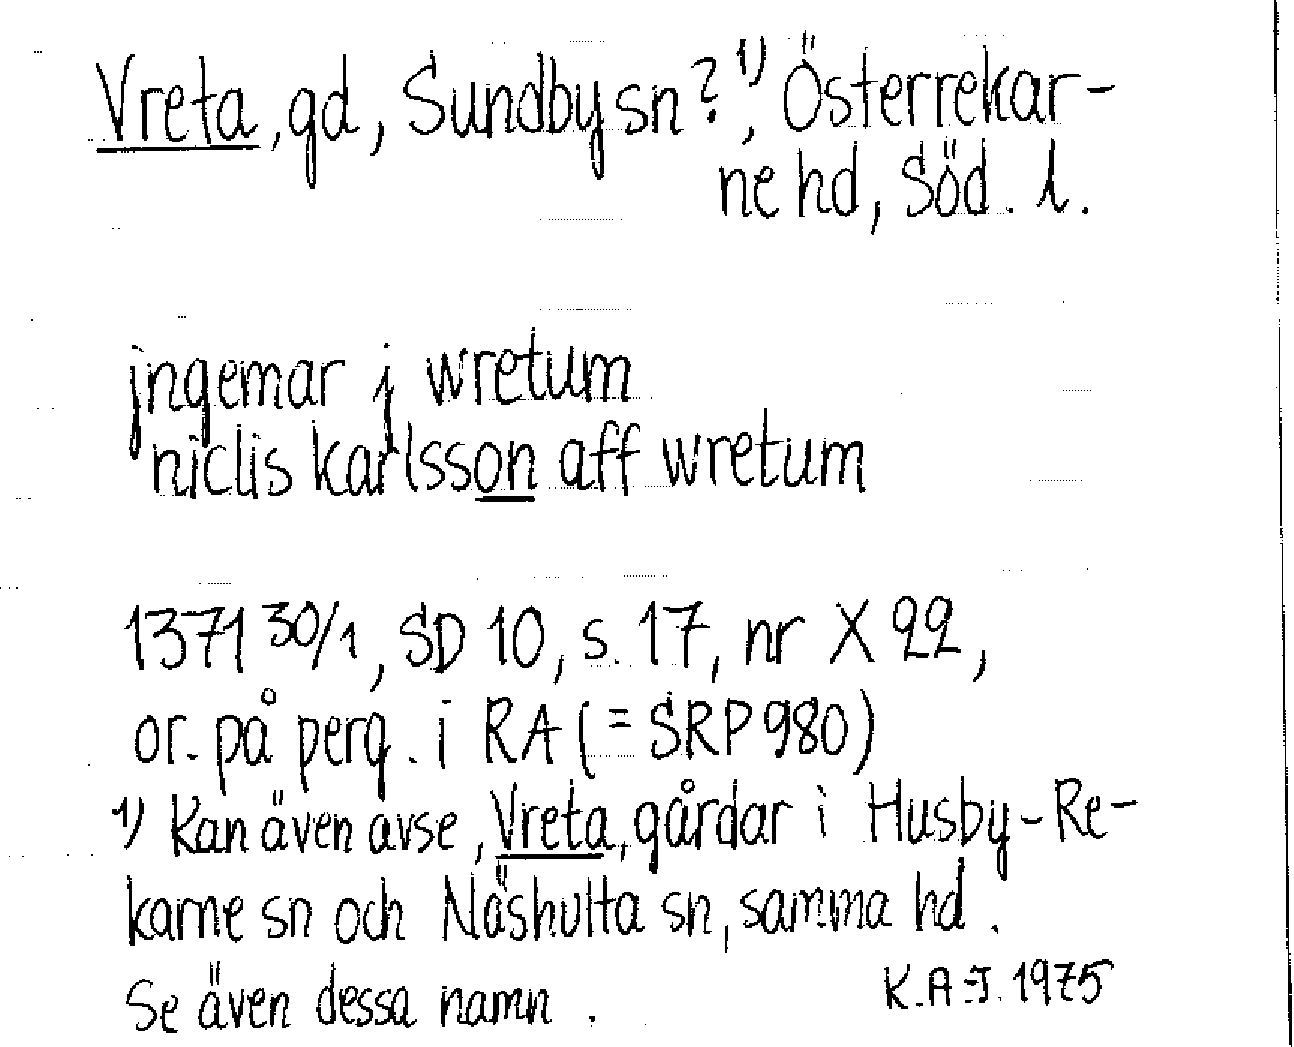 Vreta, gd, Sundby sn?¹⁾, Österrekar-
ne hd, Söd. l.
jngemar j wretum
niclis karlsson aff wretum
1371 30/1, SD 10, s. 17, nr X 22,
or. på perg. i RA (= SRP 980)
1) Kan även avse, Vreta, gårdar i Husby-Re-
karne sn och Näshulta sn, samma hd.
Se även dessa namn.
K.A-J. 1975